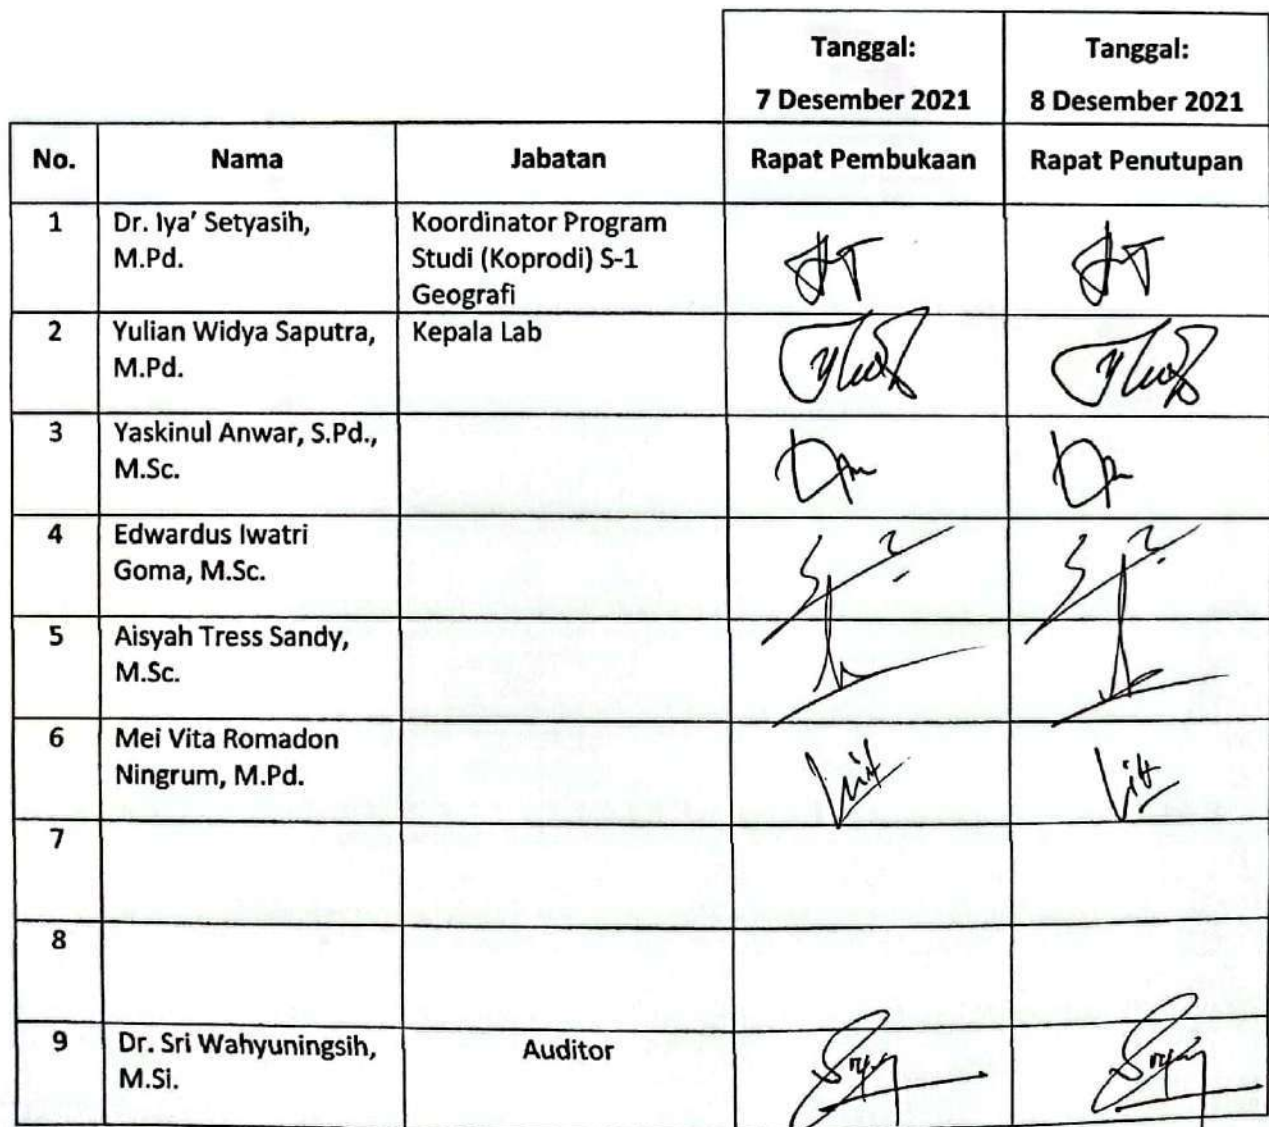 Tanggal:
Tanggal:
7 Desember 2021
8 Desember 2021
No.
Nama
Jabatan
Rapat Pembukaan
Rapat Penutupan
1
Dr. Iya' Setyasih,
M.Pd.
Koordinator Program
Studi (Koprodi) S-1
Geografi
2
Yulian Widya Saputra,
M.Pd.
Kepala Lab
3
Yaskinul Anwar, S.Pd.,
M.Sc.
4
Edwardus Iwatri
Goma, M.Sc.
5
Aisyah Tress Sandy,
M.Sc.
6
Mei Vita Romadon
Ningrum, M.Pd.
7
8
9
Dr. Sri Wahyuningsih,
M.Si.
Auditor